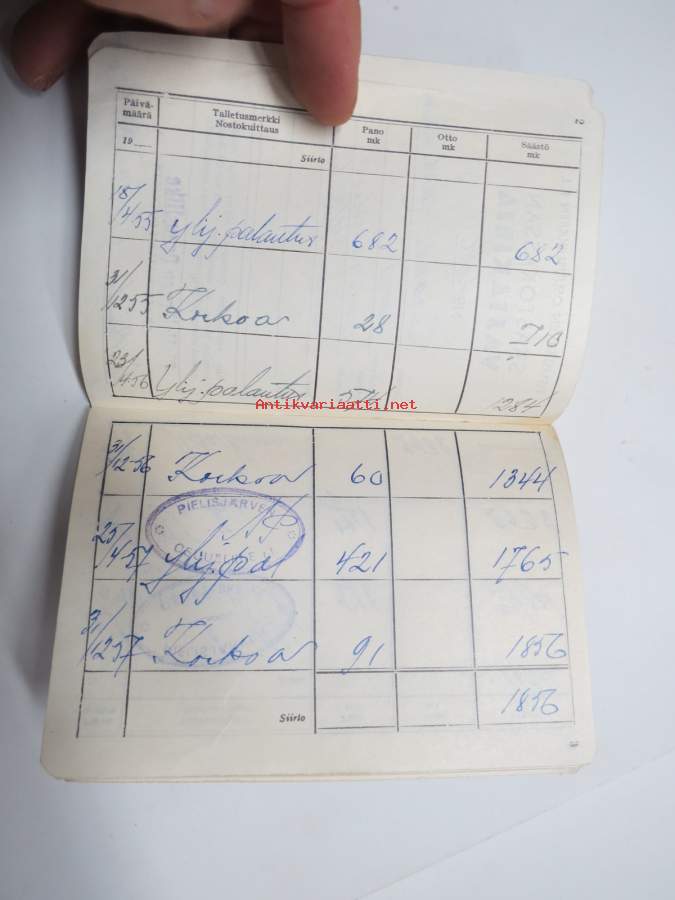 2
Päivä-
määrä
Talletusmerkki
Nostokuittaus
Pano
mk
Otto
mk
Säästö
mk
19
Siirto
18/
4 55 ylij. palautus 682 682
31/
12 55 Korkoa 28 710
23/
4 56 Ylij. palautus 574 1284
Antikvariaatti.net
31/
12-56 Korkoa 60 1344
PIELISJÄRVEN
25/
4-57 ylij. pal 421 1765
31/
12 57 Korkoa 91 1856
1856
Siirto
3